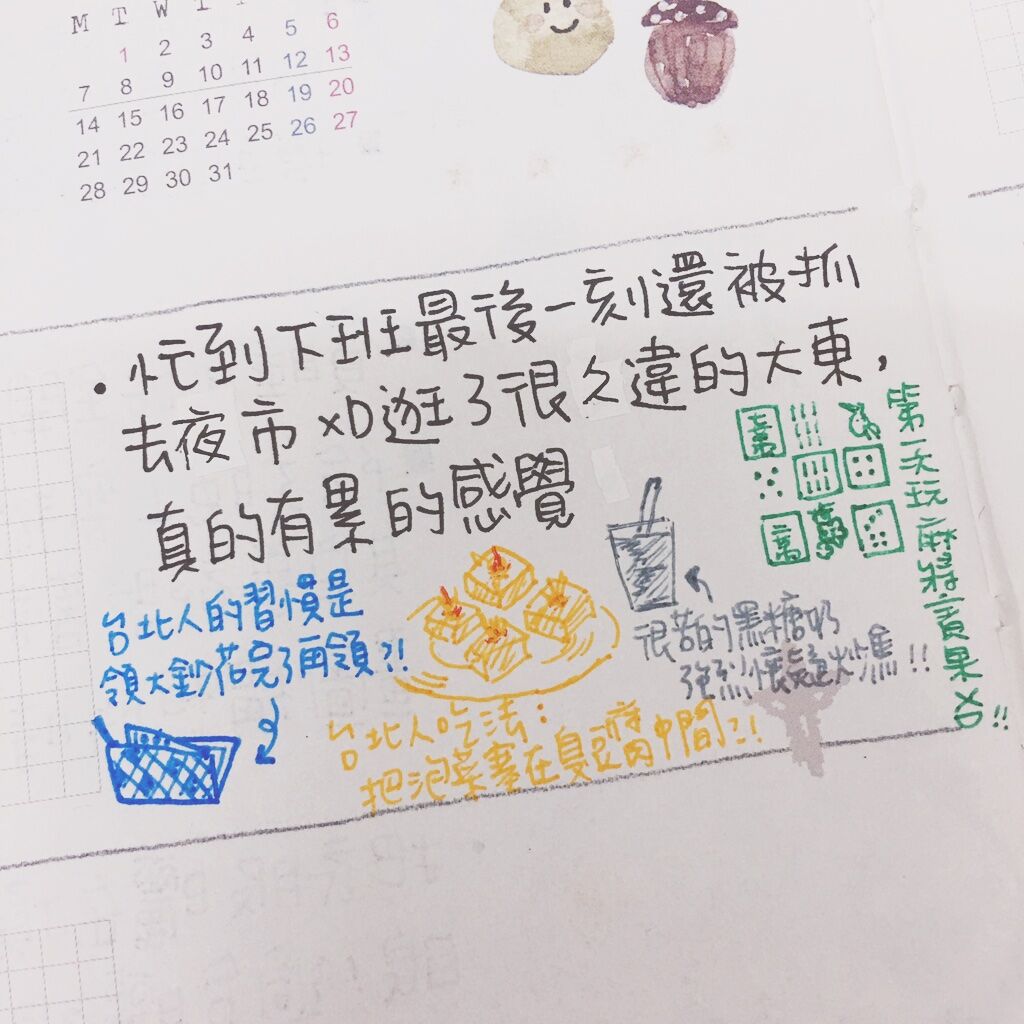 M T W T
1 2 3 4 5 6
7 8 9 10 11 12 13
14 15 16 17 18 19 20
21 22 23 24 25 26 27
28 29 30 31
• 忙到下班最後一刻還被抓
去夜市 xD 逛了很久違的大東,
真的有累的感覺
台北人的習慣是
領大鈔花完了再領?!
台北人吃法:
把泡菜塞在臭豆腐中間?!
很苦的黑糖奶
強烈懷疑炒焦!!
第一次玩麻將賓果 XD!!
萬
萬